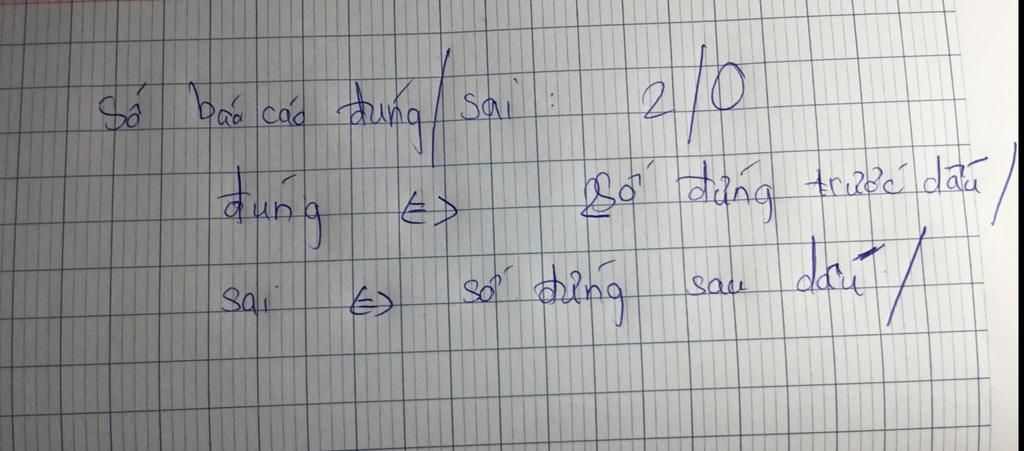 Số báo cáo đúng/sai: 2/0
đúng <=> số đứng trước dấu /
sai <=> số đứng sau dấu /